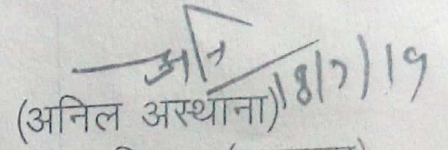 (अनिल अस्थाना) 18/7/19